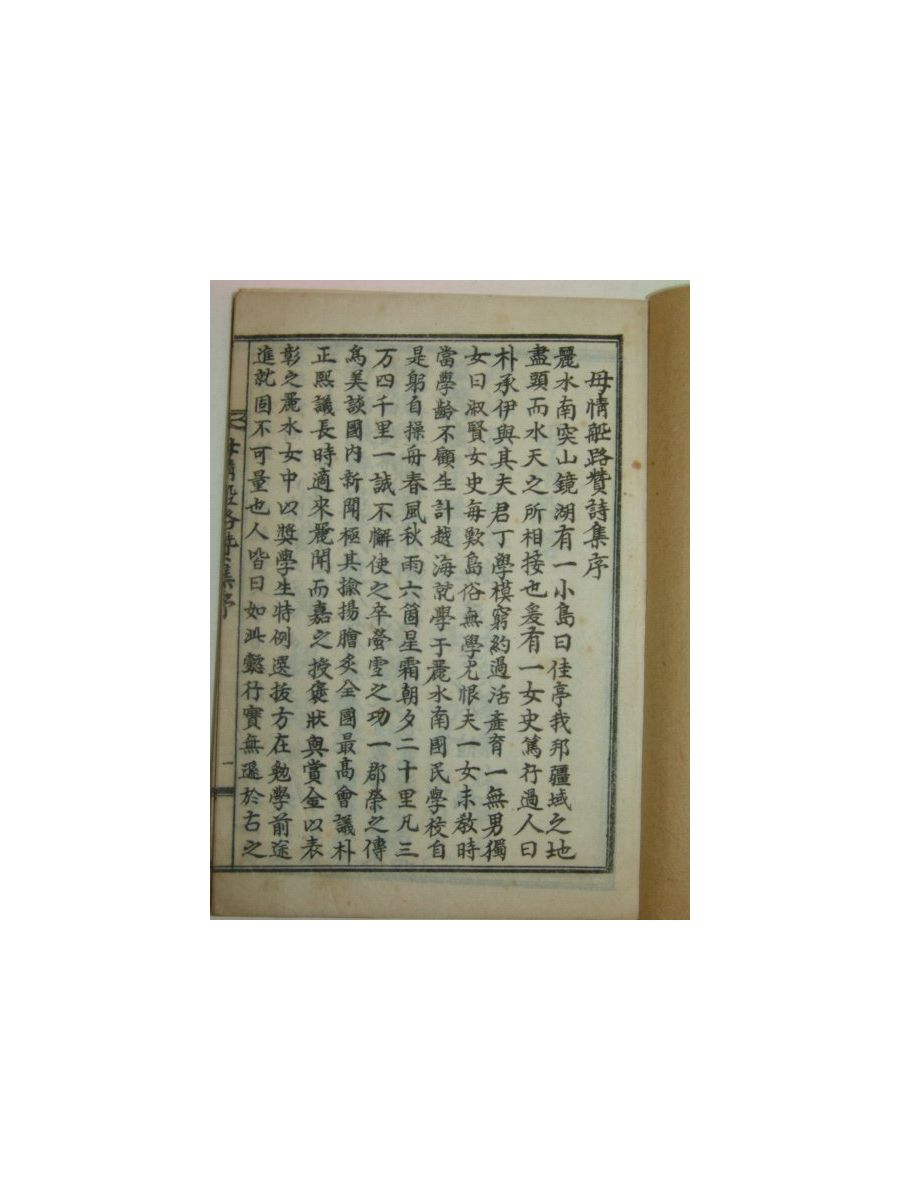 母情船路贊詩集序
麗水南突山鏡湖有一小島曰佳亭我邦疆域之地
盡頭而水天之所相接也爰有一女史篤行過人曰
朴承伊與其夫君丁學模窮約過活產育一無男獨
女曰淑賢女史每歎島俗無學尤恨夫一女未敎時
當學齡不顧生計越海就學于麗水南國民學校自
是躬自操舟春風秋雨六箇星霜朝夕二十里凡三
万四千里一誠不懈使之卒螢雪之功一郡榮之傳
爲美談國內新聞極其揄揚膾炙全國最高會議朴
正熙議長時適來麗聞而嘉之授褒狀與賞金以表
彰之麗水女中以奬學生特例選拔方在勉學前途
進就固不可量也人皆曰如此懿行實無遜於古之
詩集序
一